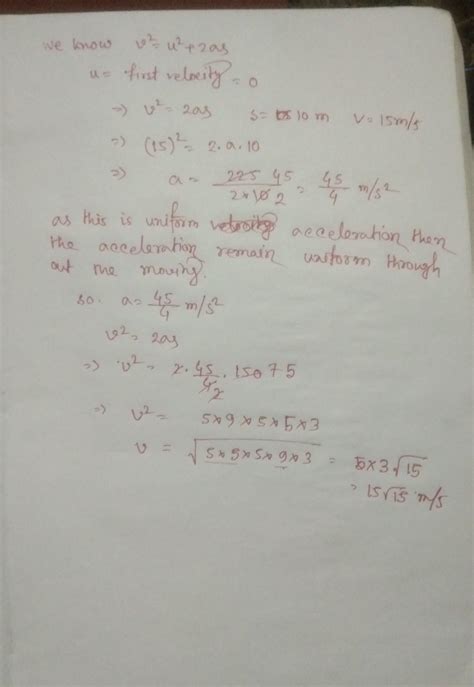 we know v² = u² + 2as
u = first velocity = 0
⇒ v² = 2as s = 10 m v = 15 m/s
⇒ (15)² = 2.a.10
⇒ a = 225 45 / 2×10 2 = 45/4 m/s²
as this is uniform velocity acceleration then
the acceleration remain uniform through
out the moving.
so. a = 45/4 m/s²
v² = 2as
⇒ v² = 2. 45/4 2 . 150 75
⇒ v² = 5×9×5×5×3
v = √5×5×5×9×3 = 5×3√15
= 15√15 m/s